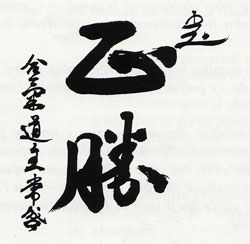 正勝
合氣道主常盛